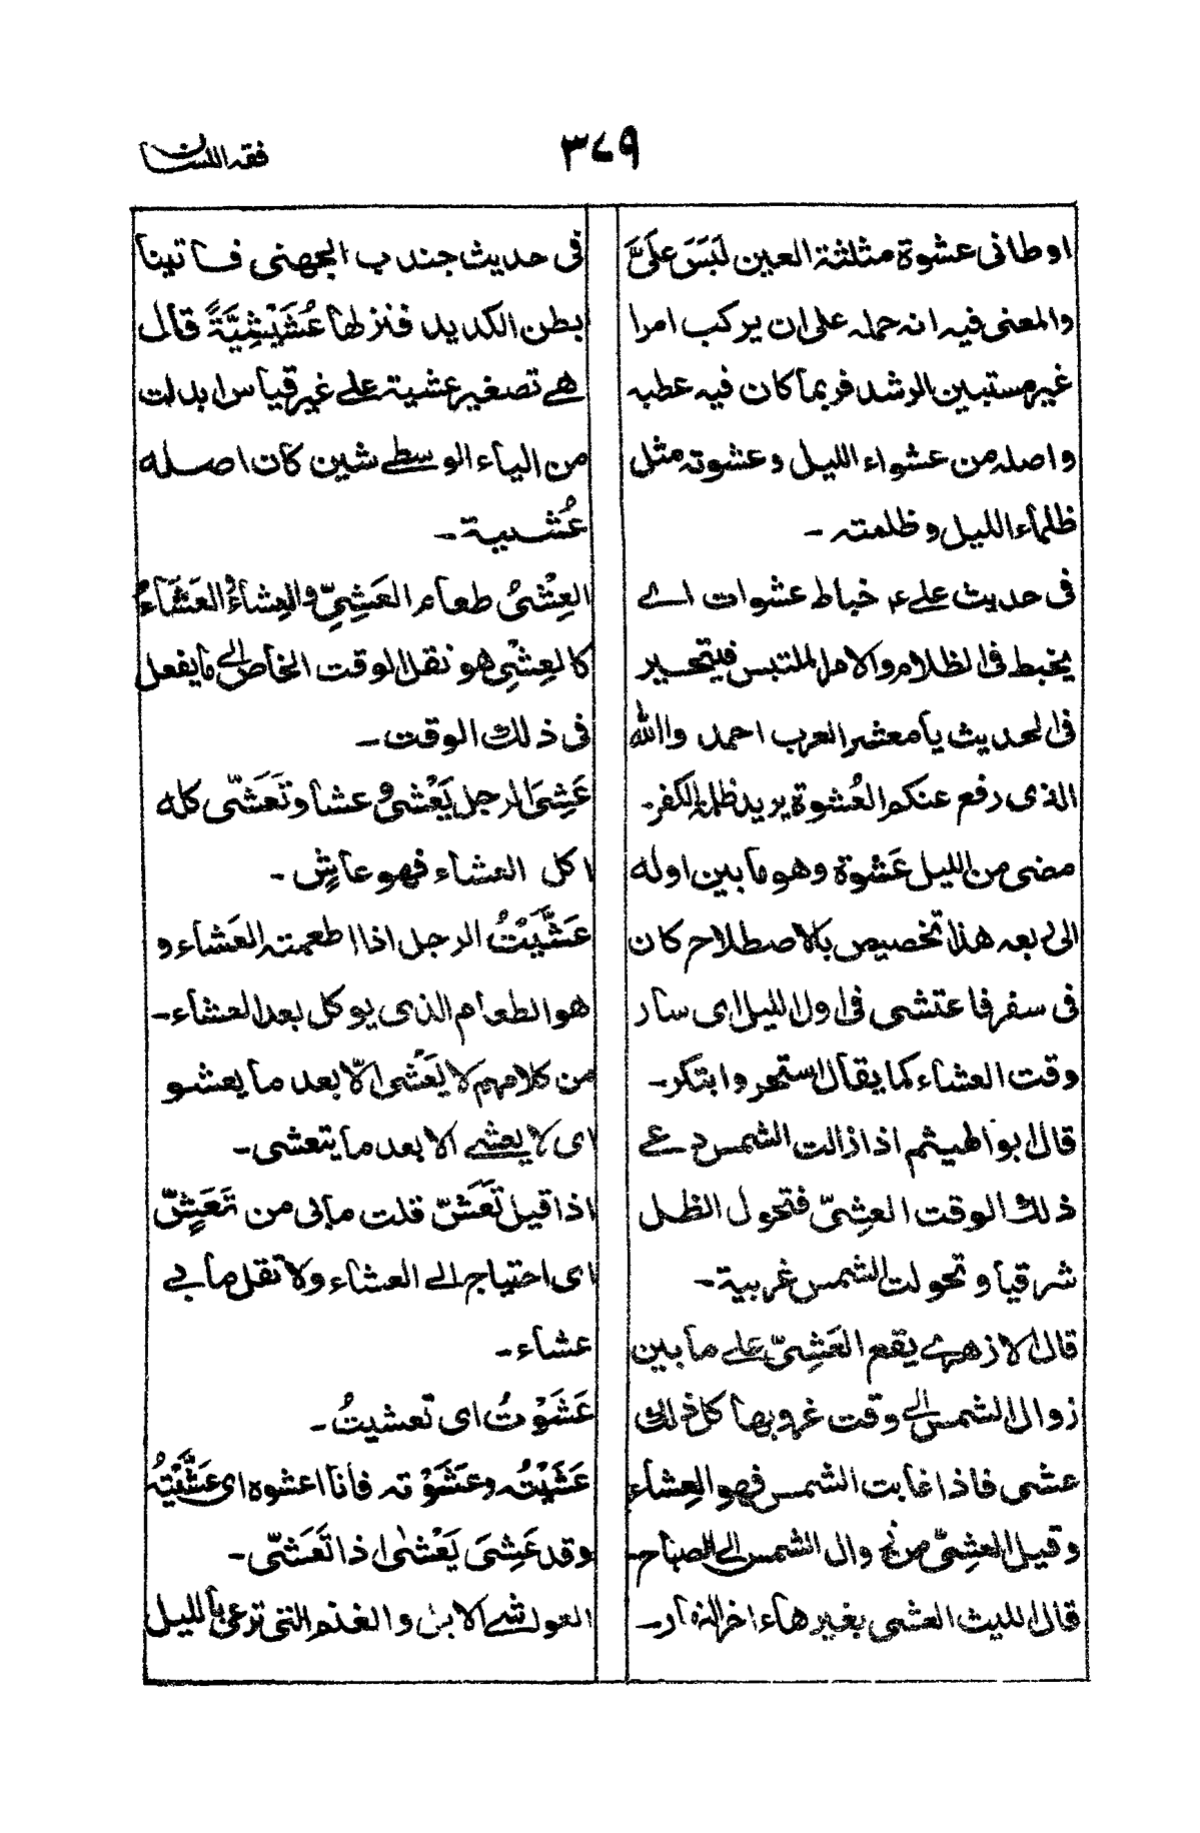 فقه اللسان
٣٤٩
اوطانى عشوة مثلثة العين لَبَسَ عَلَىَّ
والمعنى فيه انه حمله على ان يركب امرا
غير مستبين الرشد فربما كان فيه عطبه
واصله من عشواء الليل وعشوته مثل
ظلماء الليل وظلمته -
فى حديث علىؑ خباط عشوات اے
يخبط فى الظلام والامر الملتبس فيتحير
فى الحديث يا معشر العرب احمدوا الله
الذى رفع عنكم العُشوة يريد ظلمة الكفر-
مضى من الليل عَشْوة وهو ما بين اوله
الى ربعه هذا تخصيص بالاصطلاح كان
فى سفر فاعتشى فى اول الليل اى سار
وقت العشاء كما يقال استحر وابتكر-
قال ابو الهيثم اذا زالت الشمس دعے
ذلك الوقت العِشِىّ فتحول الظل
شرقيا وتحولت الشمس غربية-
قال الازهرے يقع العَشِىّ علے ما بين
زوال الشمس الے وقت غروبها كل ذلك
عشى فاذا غابت الشمس فهو العِشاء
وقيل العشِىّ من زوال الشمس الى الصباح-
قال الليث العشى بغير هاء اخر النهار-
فى حديث جندب الجهنى فاتينا
بطن الكديد فنزلها عُشَيْشِيَّةً قال
هے تصغير عشية علے غير قياس ابدلت
من الياء الوسطے شين كان اصله
عُشيية-
العِشْىُ طعام العَشِىِّ والعِشاءُ العَشَاءُ
كالعِشْىِ هو نقل الوقت الخاص الے ما يفعل
فى ذلك الوقت-
عَشِىَ الرجل يَعْشىٰ وعشا وتَعَشّى كله
اكل العشاء فهو عاشٍ -
عَشَّيْتُ الرجل اذا اطعمته العَشاء و
هو الطعام الذى يوكل بعد العشاء-
من كلامهم لا يَعْشى الّا بعد ما يعشو
اى لا يعشے الا بعد ما يتعشى-
اذا قيل تَعَشّ قلت ما بى من تَعَشٍّ
اى احتياج الے العشاء ولا تقل ما بے
عشاء-
عَشَوْتُ اى تعشيتُ-
عَشَيْتُه وعَشَوْته فانا اعشوه اى عَشَّيْتُه
وقد عَشِىَ يَعْشىٰ اذا تَعَشّى-
العواشے الابل والغنم التى ترعى بالليل